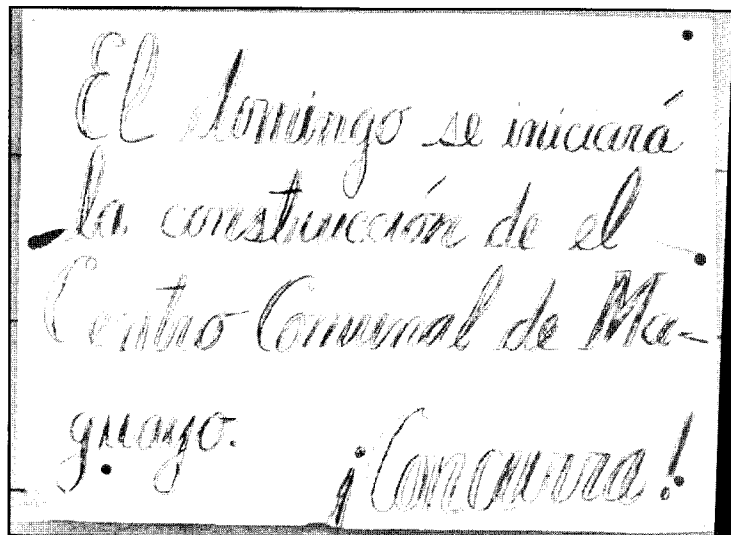 El domingo se iniciará
la construcción de el
Centro Comunal de Ma-
guayo.
¡Concurra!